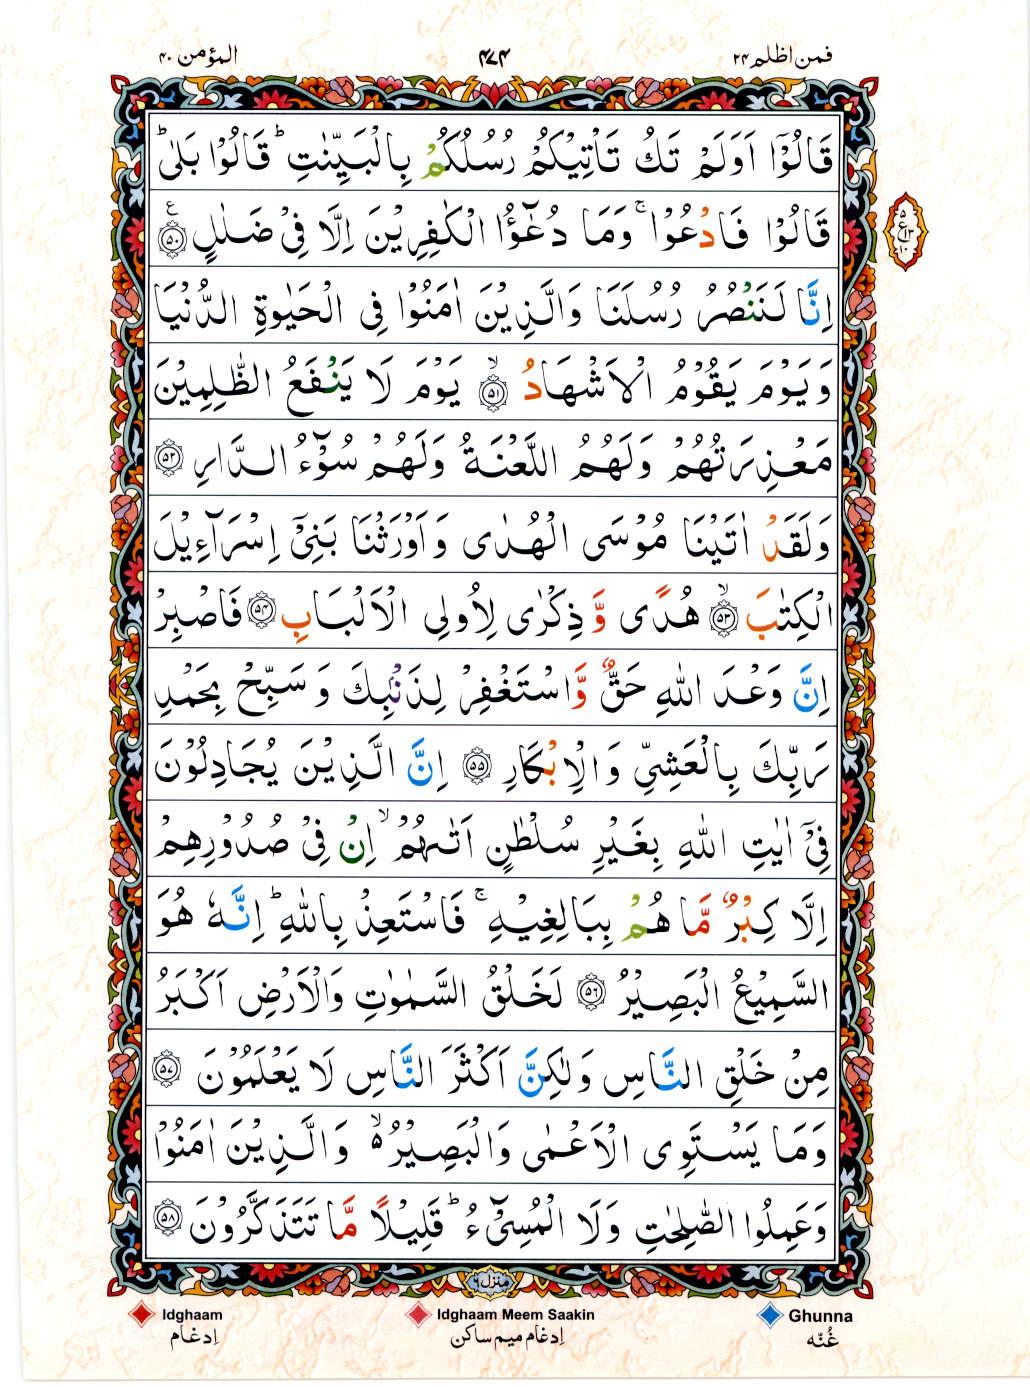 فمن اظلم ۲۴
۴۷۴
المؤمن ۴۰
قَالُوْۤا اَوَلَمْ تَكُ تَاْتِيْكُمْ رُسُلُكُمْ بِالْبَيِّنٰتِ ؕ قَالُوْا بَلٰى ؕ
قَالُوْا فَادْعُوْا ۚ وَمَا دُعٰٓؤُا الْكٰفِرِيْنَ اِلَّا فِيْ ضَلٰلٍ ۧ‏﴿۵۰﴾
اِنَّا لَنَنْصُرُ رُسُلَنَا وَالَّذِيْنَ اٰمَنُوْا فِى الْحَيٰوةِ الدُّنْيَا
وَيَوْمَ يَقُوْمُ الْاَشْهَادُ ۙ‏﴿۵۱﴾ يَوْمَ لَا يَنْفَعُ الظّٰلِمِيْنَ
مَعْذِرَتُهُمْ وَلَهُمُ اللَّعْنَةُ وَلَهُمْ سُوْٓءُ الدَّارِ ‏﴿۵۲﴾
وَلَقَدْ اٰتَيْنَا مُوْسَى الْهُدٰى وَاَوْرَثْنَا بَنِىْۤ اِسْرَآءِيْلَ
الْكِتٰبَ ۙ‏﴿۵۳﴾ هُدًى وَّذِكْرٰى لِاُولِى الْاَلْبَابِ ‏﴿۵۴﴾ فَاصْبِرْ
اِنَّ وَعْدَ اللّٰهِ حَقٌّ وَّاسْتَغْفِرْ لِذَنْۢبِكَ وَسَبِّحْ بِحَمْدِ
رَبِّكَ بِالْعَشِىِّ وَالْاِبْكَارِ ‏﴿۵۵﴾ اِنَّ الَّذِيْنَ يُجَادِلُوْنَ
فِىْۤ اٰيٰتِ اللّٰهِ بِغَيْرِ سُلْطٰنٍ اَتٰٮهُمْ ۙ اِنْ فِىْ صُدُوْرِهِمْ
اِلَّا كِبْرٌ مَّا هُمْ بِبَالِغِيْهِ ۚ فَاسْتَعِذْ بِاللّٰهِ ؕ اِنَّهٗ هُوَ
السَّمِيْعُ الْبَصِيْرُ ‏﴿۵۶﴾ لَخَلْقُ السَّمٰوٰتِ وَالْاَرْضِ اَكْبَرُ
مِنْ خَلْقِ النَّاسِ وَلٰكِنَّ اَكْثَرَ النَّاسِ لَا يَعْلَمُوْنَ ‏﴿۵۷﴾
وَمَا يَسْتَوِى الْاَعْمٰى وَالْبَصِيْرُ ۙ۬ وَالَّذِيْنَ اٰمَنُوْا
وَعَمِلُوا الصّٰلِحٰتِ وَلَا الْمُسِىْٓءُ ؕ قَلِيْلًا مَّا تَتَذَكَّرُوْنَ ‏﴿۵۸﴾
۵
ع
۱۳
۱۰
منزل ۶
Idghaam
Idghaam Meem Saakin
Ghunna
اِدغام
اِدغام میم ساکن
غُنّه